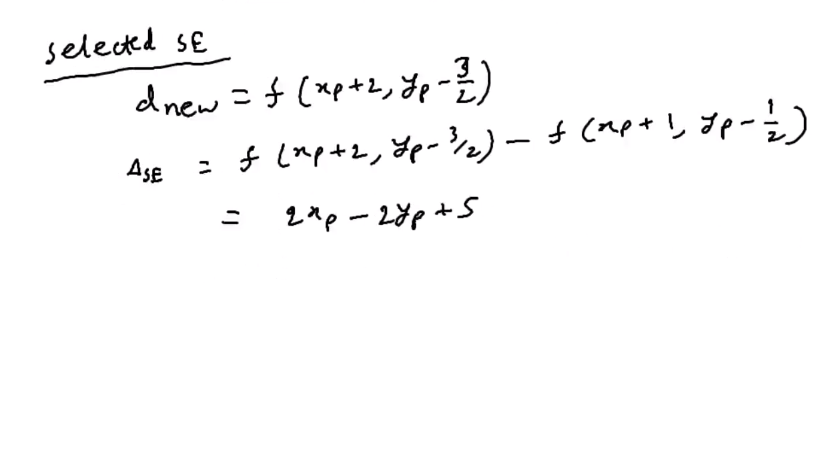 selected SE
d_new = f (x_p + 2, y_p - 3/2)
Δ_SE = f (x_p + 2, y_p - 3/2) - f (x_p + 1, y_p - 1/2)
= 2x_p - 2y_p + 5